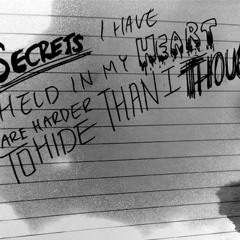 SECRETS I HAVE
HELD IN MY HEART
ARE HARDER
TO HIDE THAN I THOU